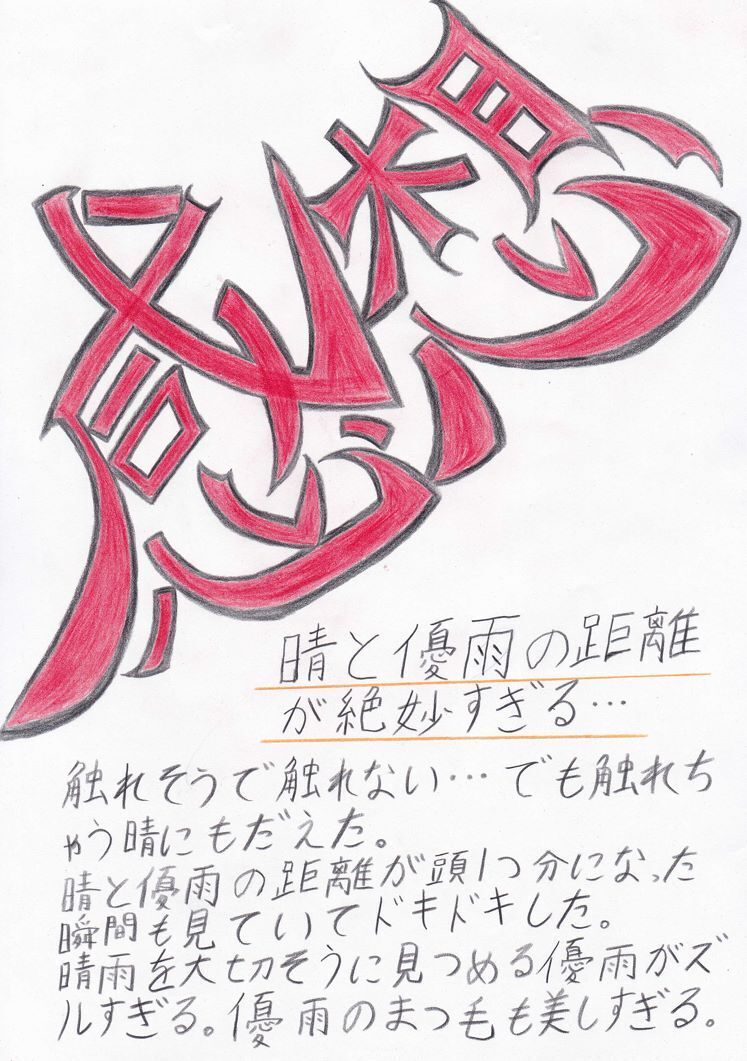 感想
晴と優雨の距離
が絶妙すぎる…
触れそうで触れない…でも触れち
ゃう晴にもだえた。
晴と優雨の距離が頭1つ分になった
瞬間も見ていてドキドキした。
晴雨を大切そうに見つめる優雨がズ
ルすぎる。優雨のまつ毛も美しすぎる。